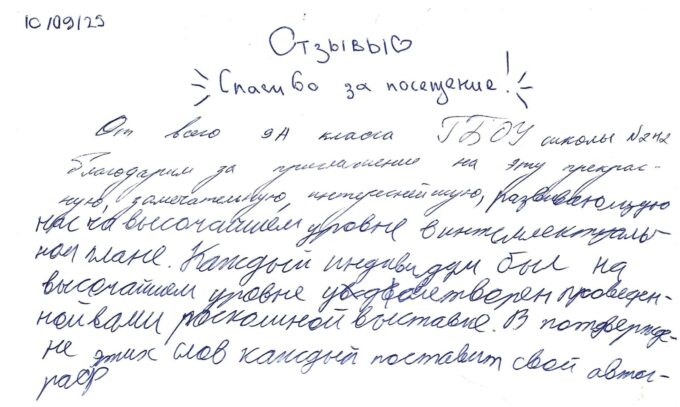 10/09/25
Отзывы♡
Спасибо за посещение!
От всего 9А класса ГБОУ школы №212
благодарим за приглашение на эту прекрас-
ную, замечательную, интереснейшую, развивающую
нас на высочайшем уровне в интеллектуаль-
ном плане. Каждый индивидум был на
высочайшем уровне удовлетворен проведен-
ной вами роскошной выставке. В потдвержде-
не этих слов каждый поставит свой автог-
раф